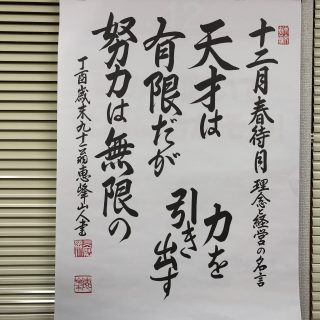 十二月春待月 理念と経営の名言
天才は
有限だが
努力は無限の
力を
引き出す
丁酉歳末九十二翁恵峰山人書